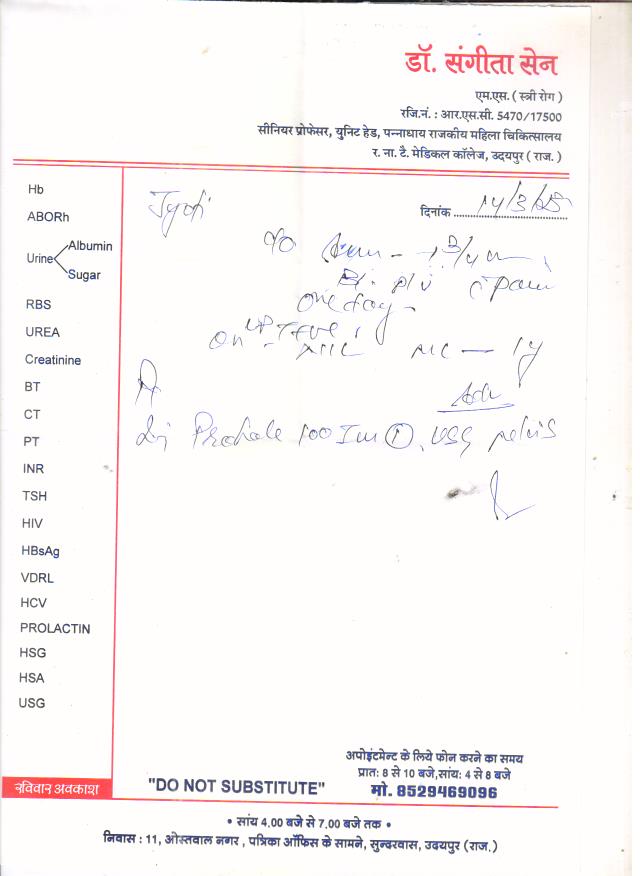 डॉ. संगीता सेन
एम.एस. ( स्त्री रोग )
रजि.नं. : आर.एस.सी. 5470/17500
सीनियर प्रोफेसर, युनिट हेड, पन्नाधाय राजकीय महिला चिकित्सालय
र. ना. टै. मेडिकल कॉलेज, उदयपुर ( राज. )
Hb
ABORh
Urine Albumin
Sugar
RBS
UREA
Creatinine
BT
CT
PT
INR
TSH
HIV
HBsAg
VDRL
HCV
PROLACTIN
HSG
HSA
USG
Jyoti
दिनांक 14/3/
one day
on UPT +ve
Adv
100 Im ①, USG pelvis
अपोइंटमेन्ट के लिये फोन करने का समय
प्रात: 8 से 10 बजे,सांय: 4 से 8 बजे
मो. 8529469096
रविवार अवकाश
"DO NOT SUBSTITUTE"
• सांय 4.00 बजे से 7.00 बजे तक •
निवास : 11, ओस्तवाल नगर , पत्रिका ऑफिस के सामने, सुन्दरवास, उदयपुर (राज.)